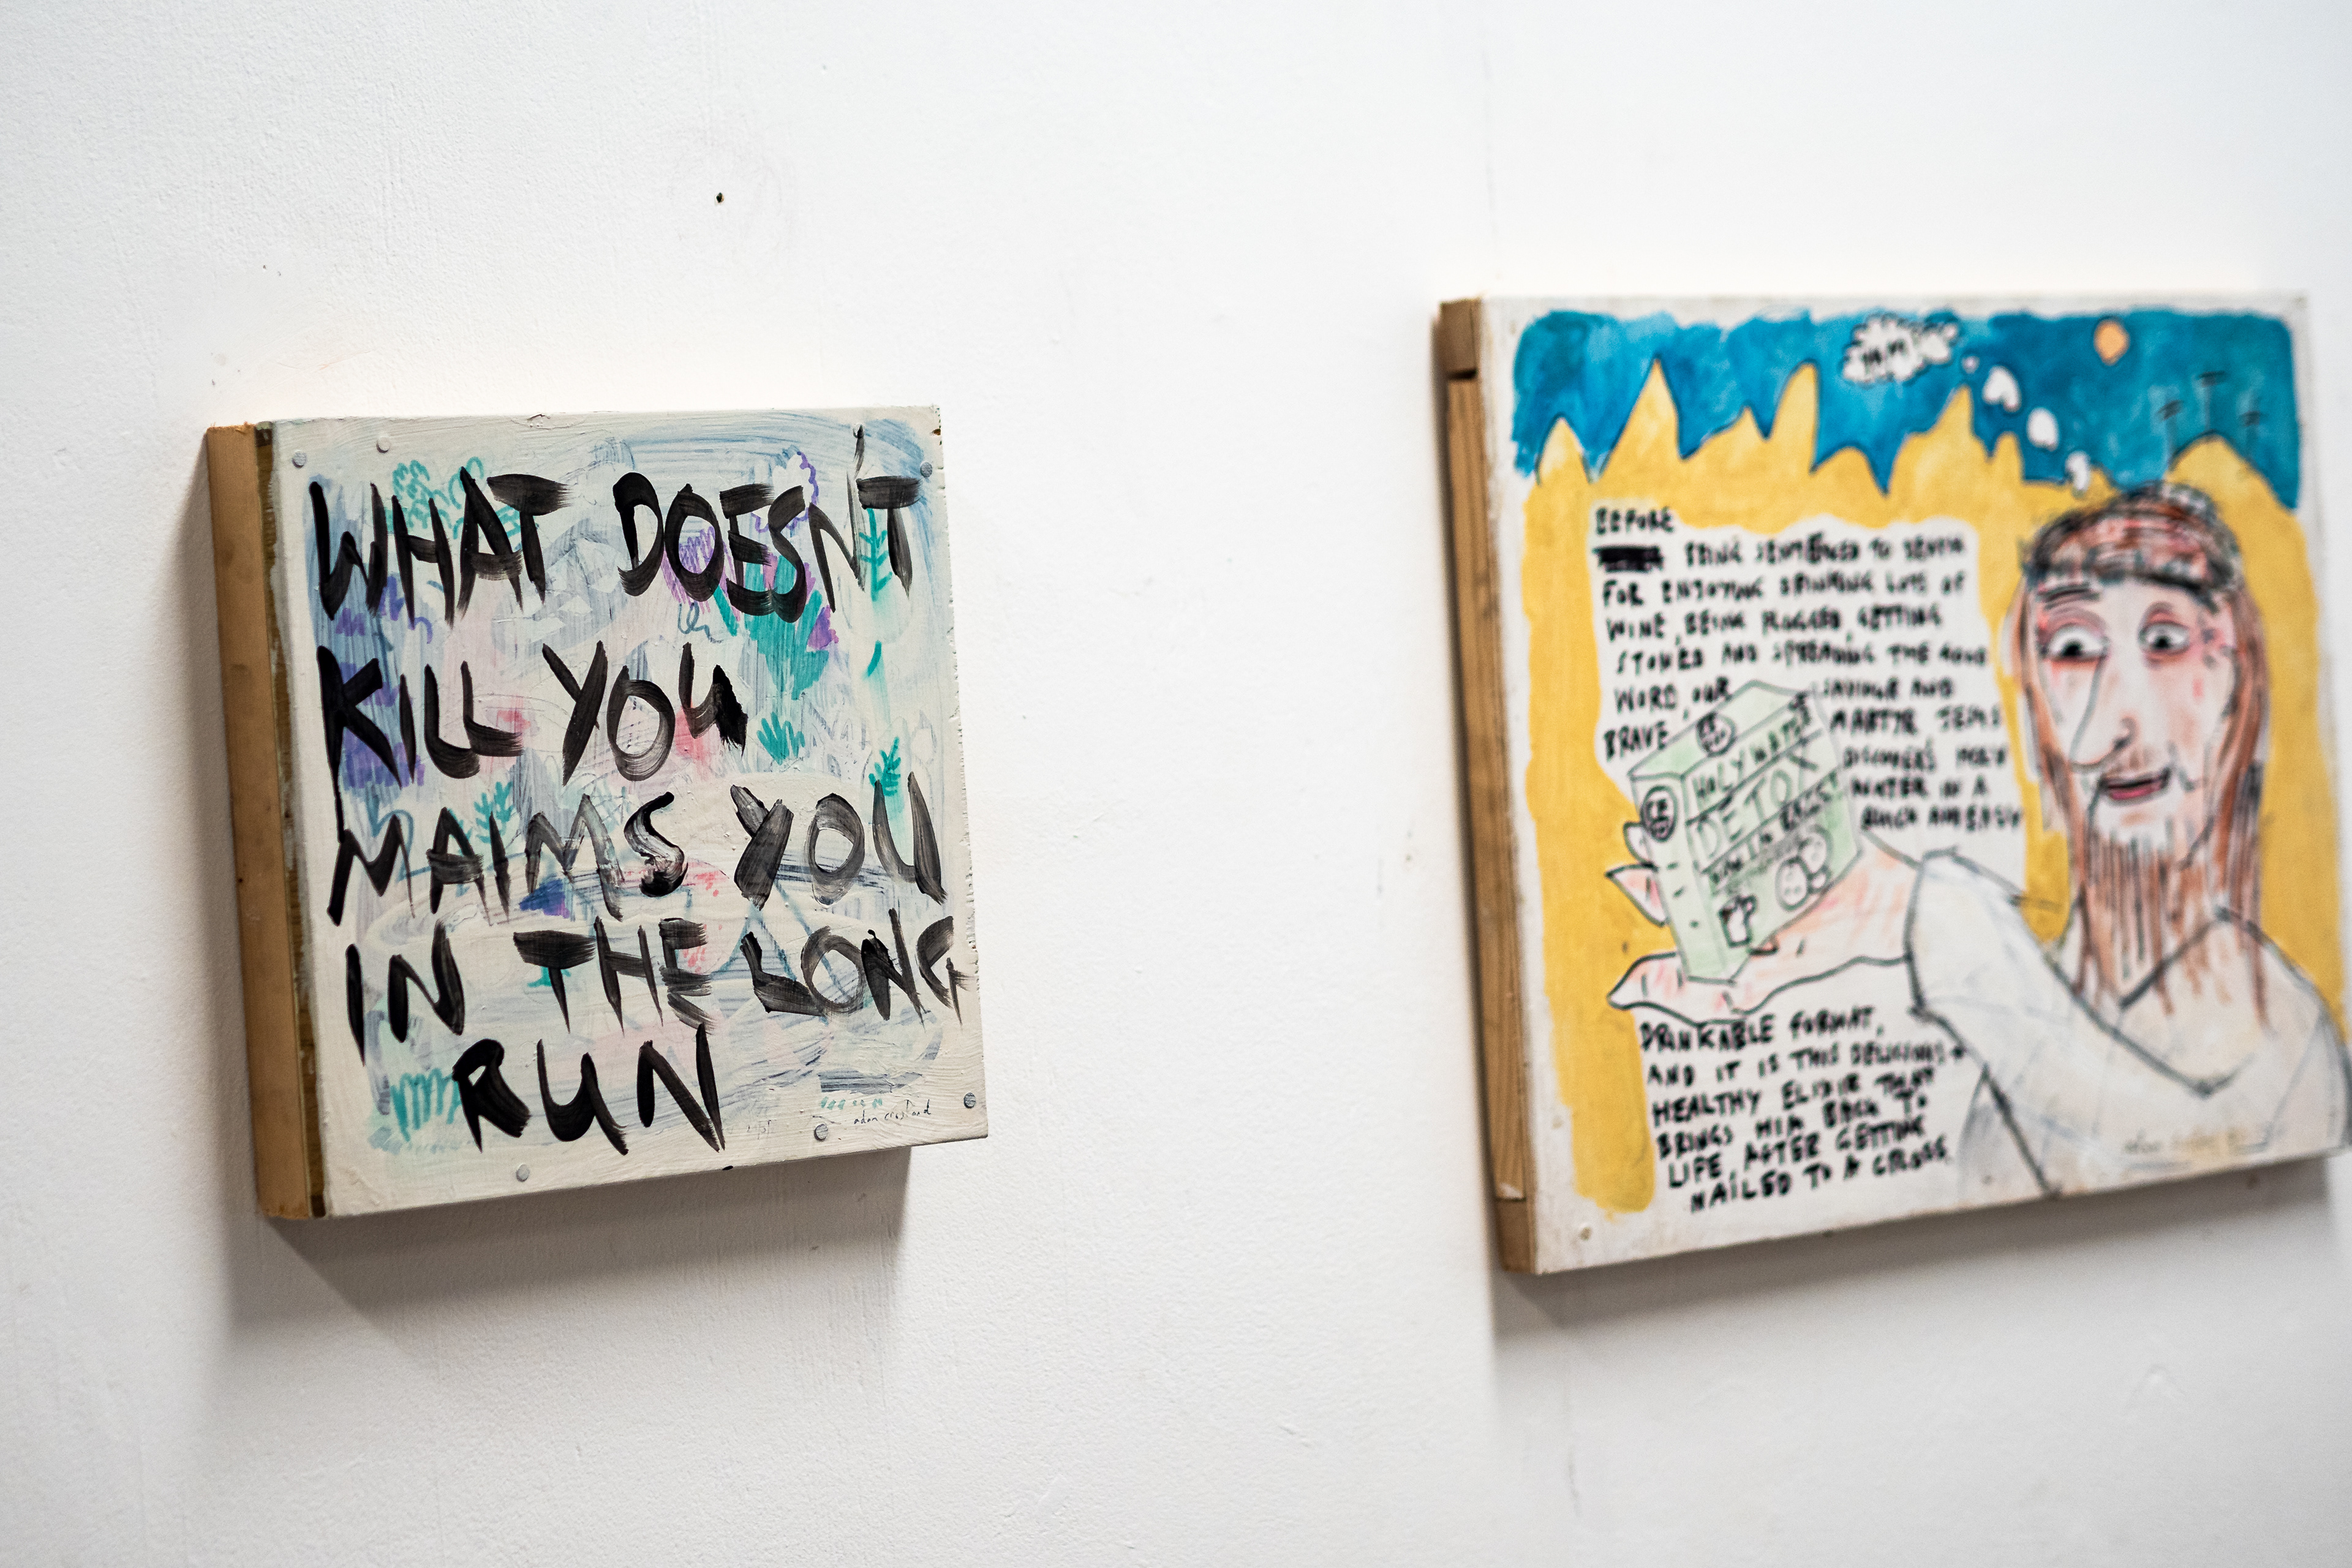 WHAT DOESN'T
KILL YOU
MAIMS YOU
IN THE LONG
RUN
YUM
BEFORE
BEING SENTENCED TO DEATH
FOR ENJOYING DRINKING LOTS OF
WINE, BEING RUGGED, GETTING
STONED AND SPREADING THE GOOD
WORD, OUR SAVIOUR AND
BRAVE MARTYR JESUS
DISCOVERS HOLY
WATER IN A
QUICK AND EASY
HOLY WATER
DETOX
DRINKABLE FORMAT,
AND IT IS THIS DELICIOUS +
HEALTHY ELIXIR THAT
BRINGS HIM BACK TO
LIFE, AFTER GETTING
NAILED TO A CROSS